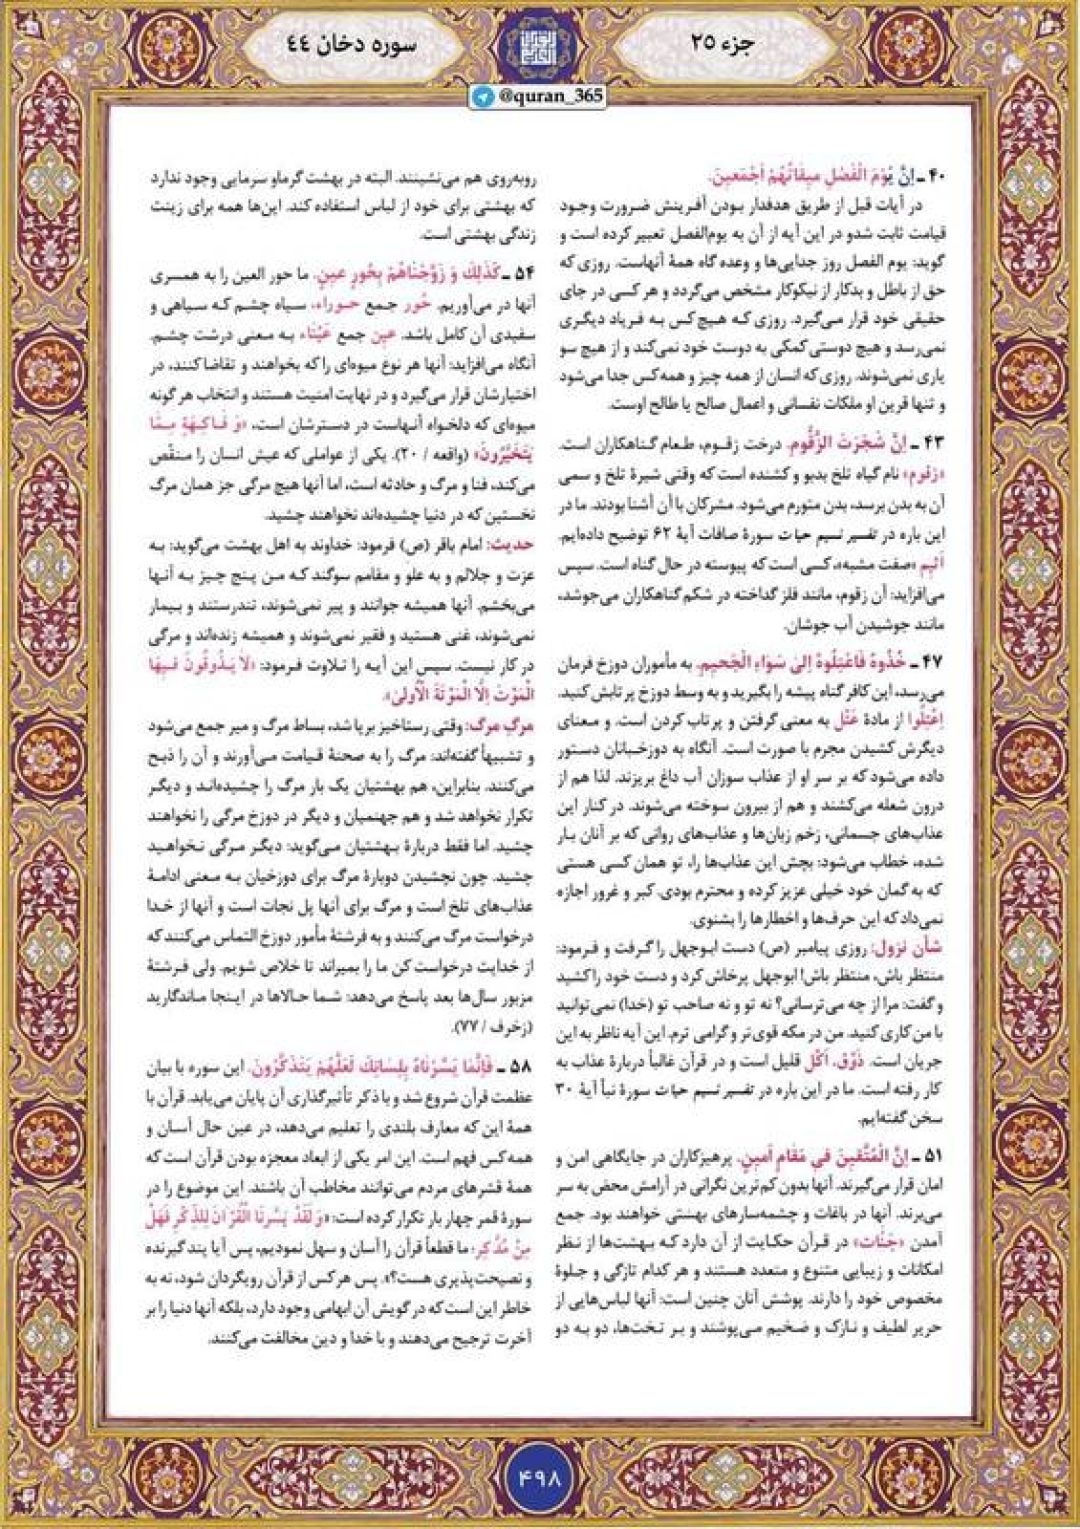 جزء ۲۵
سوره دخان ۴۴
@quran_365
۴۰ ـ اِنَّ یَوْمَ الْفَصْلِ میقاتُهُمْ اَجْمَعینَ.
در آیات قبل از طریق هدفدار بودن آفرینش ضرورت وجود
قیامت ثابت شدو در این آیه از آن به یوم‌الفصل تعبیر کرده است و
گوید: یوم الفصل روز جدایی‌ها و وعده گاه همهٔ آنهاست. روزی که
حق از باطل و بدکار از نیکوکار مشخص می‌گردد و هر کسی در جای
حقیقی خود قرار می‌گیرد. روزی کـه هیـچ کس بـه فریاد دیگری
نمی‌رسد و هیچ دوستی کمکی به دوست خود نمی‌کند و از هیچ سو
یاری نمی‌شوند. روزی که انسان از همه چیز و همه کس جدا می‌شود
و تنها قرین او ملکات نفسانی و اعمال صالح یا طالح اوست.
۴۳ ـ اِنَّ شَجَرَتَ الزَّقُّومِ. درخت زقـوم، طـعام گـناهکاران است.
«زقوم» نام گیاه تلخ بدبو و کشنده است که وقتی شیرهٔ تلخ و سمی
آن به بدن برسد، بدن متورم می‌شود. مشرکان با آن آشنا بودند. ما در
این باره در تفسیر نسیم حیات سورهٔ صافات آیهٔ ۶۲ توضیح داده‌ایم.
اَثیم «صفت مشبهه»، کسی است که پیوسته در حال گناه است. سپس
می‌افزاید: آن زقوم، مانند فلز گداخته در شکم گناهکاران می‌جوشد،
مانند جوشیدن آب جوشان.
۴۷ ـ خُذُوهُ فَاعْتِلُوهُ اِلیٰ سَوٰاءِ الْجَحیمِ. به مأموران دوزخ فرمان
می‌رسد، این کافر گناه پیشه را بگیرید و به وسط دوزخ پرتابش کنید.
اِعْتِلُوا از مادهٔ عَتْل به معنی گرفتن و پرتاب کردن است. و مـعنای
دیگرش کشیدن مجرم با صورت است. آنگاه به دوزخـبانان دستور
داده می‌شود که بر سر او از عذاب سوزان آب داغ بریزند. لذا هم از
درون شعله می‌کشند و هم از بیرون سوخته می‌شوند. در کنار این
عذاب‌های جسمانی، زخم زبان‌ها و عذاب‌های روانی که بر آنان بـار
شده، خطاب می‌شود: بچش این عذاب‌ها را، تو همان کسی هستی
که به گمان خود خیلی عزیز کرده و محترم بودی. کبر و غرور اجازه
نمی‌داد که این حرف‌ها و اخطارها را بشنوی.
شأن نزول: روزی پیامبر (ص) دست ابـوجهل را گـرفت و فـرمود:
منتظر باش، منتظر باش! ابوجهل پرخاش کرد و دست خود را کشید
و گفت: مرا از چه می‌ترسانی؟ نه تو و نه صاحب تو (خدا) نمی‌توانید
با من کاری کنید. من در مکه قوی‌تر و گرامی ترم. این آیه ناظر به این
جریان است. ذَوْق، اَکْل قلیل است و در قرآن غالباً دربارهٔ عذاب به
کار رفته است. ما در این باره در تفسیر نسیم حیات سورهٔ نبأ آیهٔ ۳۰
سخن گفته‌ایم.
۵۱ ـ اِنَّ الْمُتَّقینَ فی مَقامٍ اَمینٍ. پرهیزکاران در جایگاهی امن و
امان قرار می‌گیرند. آنها بدون کم‌ترین نگرانی در آرامش محض به سر
می‌برند. آنها در باغات و چشمه‌سارهای بهشتی خواهند بود. جمع
آمدن «جَنّات» در قرآن حکایت از آن دارد کـه بـهشت‌ها از نـظر
امکانات و زیبایی متنوع و متعدد هستند و هر کدام تازگی و جـلوهٔ
مخصوص خود را دارند. پوشش آنان چنین است: آنها لباس‌هایی از
حریر لطیف و نازک و ضخیم مـی‌پوشند و بـر تـخت‌ها، دو بـه دو
روبه‌روی هم می‌نشینند. البته در بهشت گرماو سرمایی وجود ندارد
که بهشتی برای خود از لباس استفاده کند. این‌ها همه برای زینت
زندگی بهشتی است.
۵۴ ـ کَذٰلِکَ وَ زَوَّجْنٰاهُمْ بِحُورٍ عینٍ. ما حور العین را به همسری
آنها در می‌آوریم. حُور جـمع حـوراء، سـیاه چشـم کـه سـیاهی و
سفیدی آن کامل باشد. عین جمع عَیْناء بـه مـعنی درشت چشـم.
آنگاه می‌افزاید: آنها هر نوع میوه‌ای را که بخواهند و تقاضا کنند، در
اختیارشان قرار می‌گیرد و در نهایت امنیت هستند و انتخاب هر گونه
میوه‌ای که دلخواه آنهاست در دسترشان است، «وَ فٰـاکِـهَةٍ مِـمّٰا
یَتَخَیَّرُونَ» (واقعه / ۲۰). یکی از عواملی که عیش انسان را منقّص
می‌کند، فنا و مرگ و حادثه است، اما آنها هیچ مرگی جز همان مرگ
نخستین که در دنیا چشیده‌اند نخواهند چشید.
حدیث: امام باقر (ص) فرمود: خداوند به اهل بهشت می‌گوید: بـه
عزت و جلالم و به علو و مقامم سوگند کـه مـن پنج چـیز بـه آنـها
می‌بخشم. آنها همیشه جوانند و پیر نمی‌شوند، تندرستند و بـیمار
نمی‌شوند، غنی هستید و فقیر نمی‌شوند و همیشه زنده‌اند و مرگی
در کار نیست. سپس این آیـه را تـلاوت فرمود: «لاٰ یَـذُوقُونَ فـیهَا
الْمَوْتَ اِلَّا الْمَوْتَةَ الْاُولیٰ».
مرگ مرگ: وقتی رستاخیز برپا شد، بساط مرگ و میر جمع می‌شود
و تشبیهاً گفته‌اند: مرگ را به صحنهٔ قیامت می‌آورند و آن را ذبـح
می‌کنند. بنابراین، هم بهشتیان یک بار مرگ را چشیده‌انـد و دیگـر
تکرار نخواهد شد و هم جهنمیان و دیگر در دوزخ مرگی را نخواهند
چشید. اما فقط دربارهٔ بـهشتیان مـی‌گوید: دیگـر مـرگی نـخواهید
چشید. چون نچشیدن دوبارهٔ مرگ برای دوزخیان بـه مـعنی ادامـهٔ
عذاب‌های تلخ است و مرگ برای آنها پل نجات است و آنها از خـدا
درخواست مرگ می‌کنند و به فرشتهٔ مأمور دوزخ التماس می‌کنند که
از خدایت درخواست کن ما را بمیراند تا خلاص شویم. ولی فرشتهٔ
مزبور سال‌ها بعد پاسخ می‌دهد: شـما حـالاها در ایـنجا مـاندگارید
(زخرف / ۷۷).
۵۸ ـ فَاِنَّمٰا یَسَّرْنٰاهُ بِلِسٰانِکَ لَعَلَّهُمْ یَتَذَکَّرُونَ. این سوره با بیان
عظمت قرآن شروع شد و با ذکر تأثیرگذاری آن پایان می‌یابد. قرآن با
همهٔ این که معارف بلندی را تعلیم می‌دهد، در عین حال آسان و
همه کس فهم است. این امر یکی از ابعاد معجزه بودن قرآن است که
همهٔ قشرهای مردم می‌توانند مخاطب آن باشند. این موضوع را در
سورهٔ قمر چهار بار تکرار کرده است: «وَ لَقَدْ یَسَّرْنَا الْقُرْآنَ لِلذِّکْرِ فَهَلْ
مِنْ مُدَّکِرٍ؛ ما قطعاً قرآن را آسان و سهل نمودیم، پس آیا پند گیرنده
و نصیحت‌پذیری هست؟». پس هر کس از قرآن رویگردان شود، نه به
خاطر این است که در گویش آن ابهامی وجود دارد، بلکه آنها دنیا را بر
آخرت ترجیح می‌دهند و با خدا و دین مخالفت می‌کنند.
۴۹۸